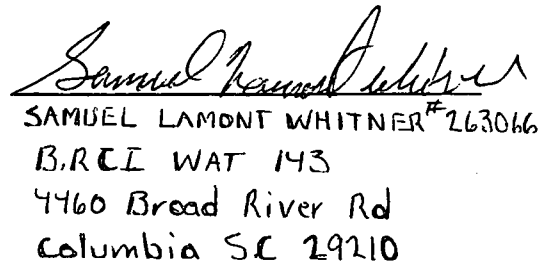 Samuel Lamont Whitner
SAMUEL LAMONT WHITNER #263066
B.RCI WAT 143
4460 Broad River Rd
Columbia SC 29210